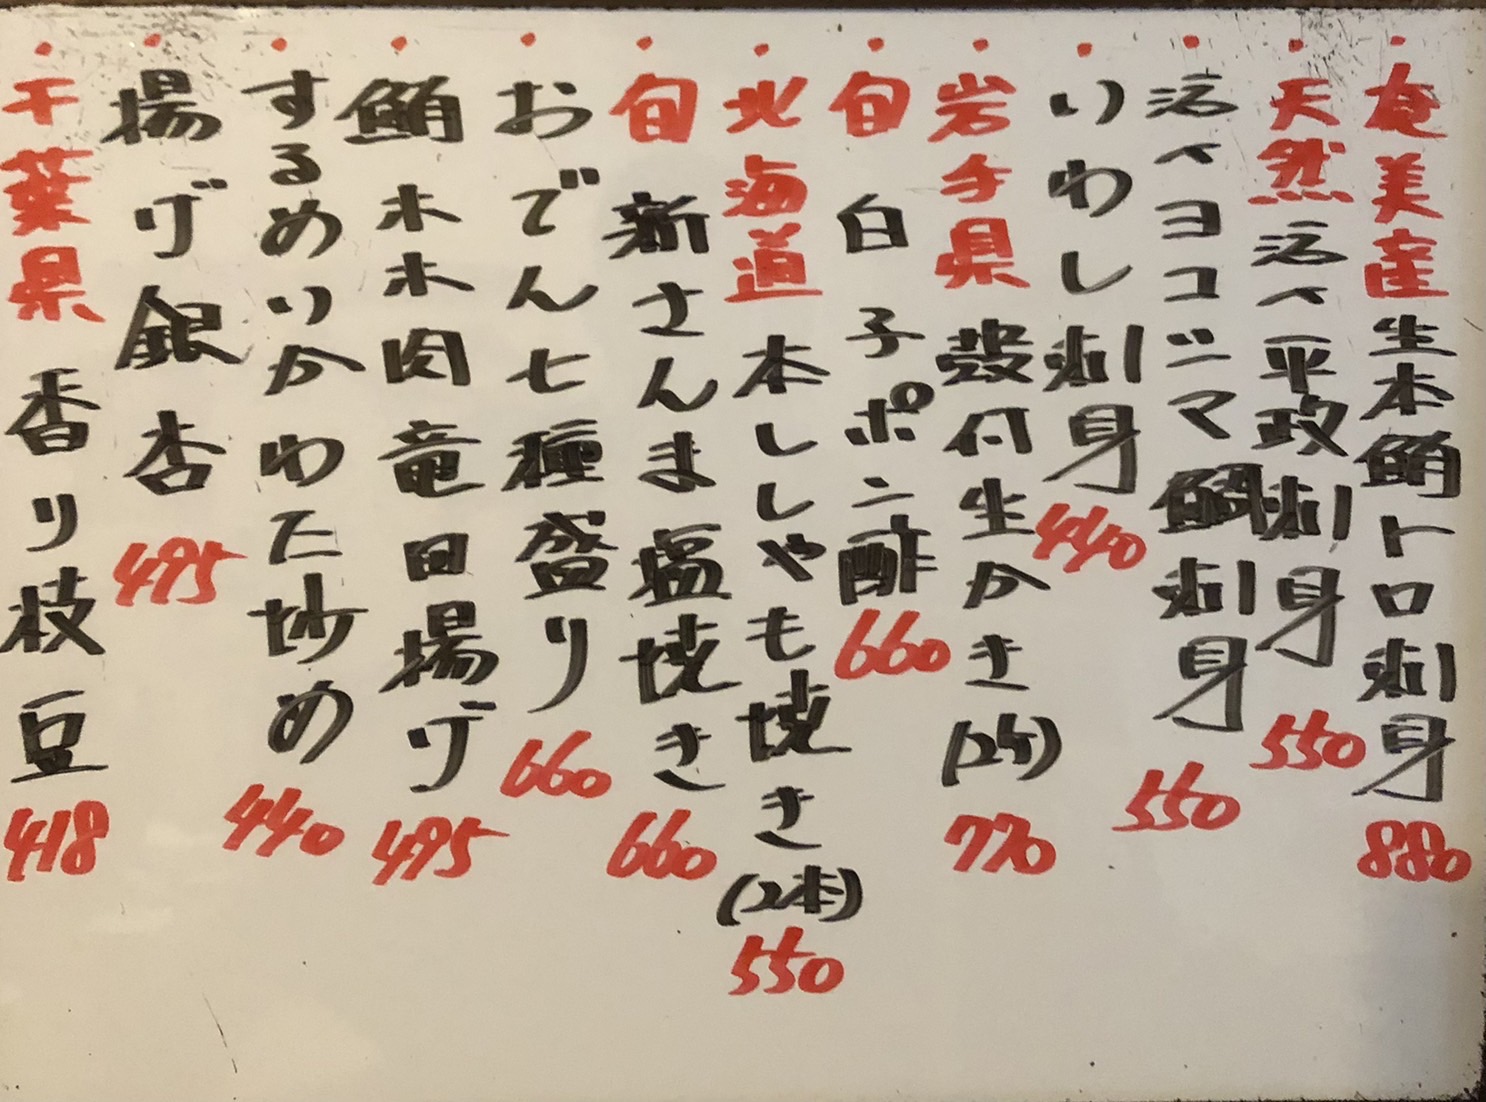 ・奄美産 生本鮪トロ刺身 880
・天然 活〆平政刺身 550
・活〆ヨコジマ鯛刺身 550
・いわし刺身 440
・岩手県 殻付生かき(2ケ) 770
・旬 白子ポン酢 660
・北海道 本ししゃも焼き(2本) 550
・旬 新さんま塩焼き 660
・おでん七種盛り 660
・鮪ホホ肉竜田揚げ 495
・するめいかわた炒め 440
・揚げ銀杏 495
・千葉県 香り枝豆 418